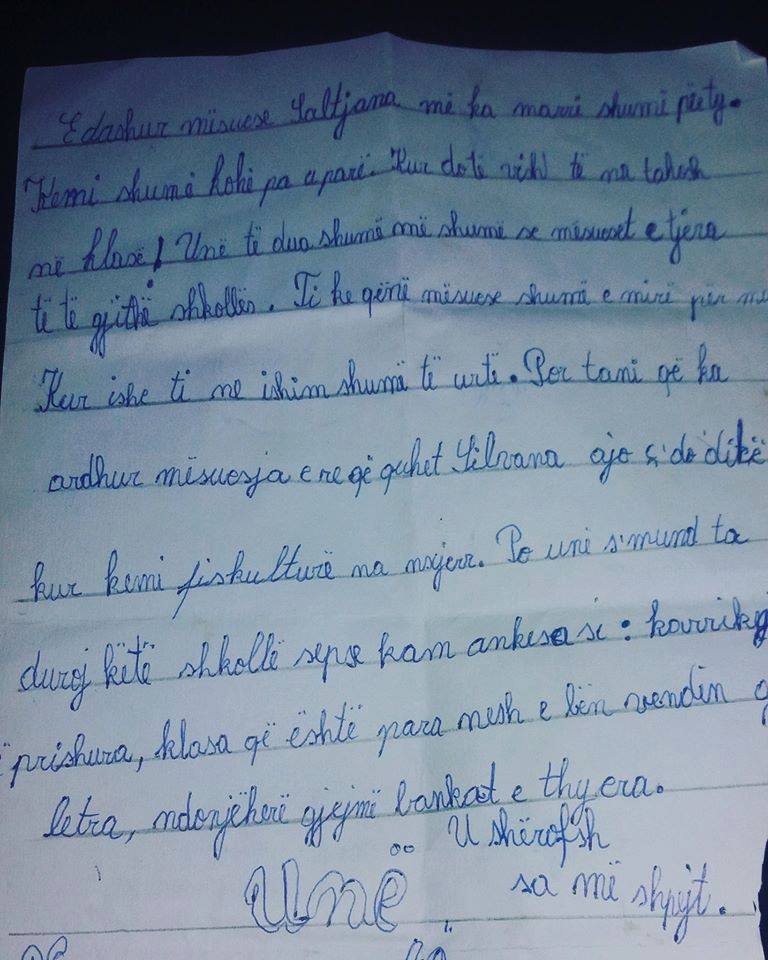 E dashur mësuese Saltjana më ka marrë shumë përty.
Kemi shumë kohë pa u parë. Kur do të vish të na takosh
në klasë! Unë të dua shumë më shumë se mësueset e tjera
të të gjithë shkollës. Ti ke qënë mësuese shumë e mirë për
Kur ishe ti ne ishim shumë të urtë. Por tani që ka
ardhur mësuesja e re që quhet Silvana ajo ç'do ditë
kur kemi fiskulturë na nxjerr. Po unë s'mund ta
duroj këtë shkollë sepse kam ankesa si: karrikg
prishura, klasa që është para nesh e lën vendin
letra, ndonjëherë gjejmë bankat e thyera.
U shërofsh
Unë
sa më shpejt.